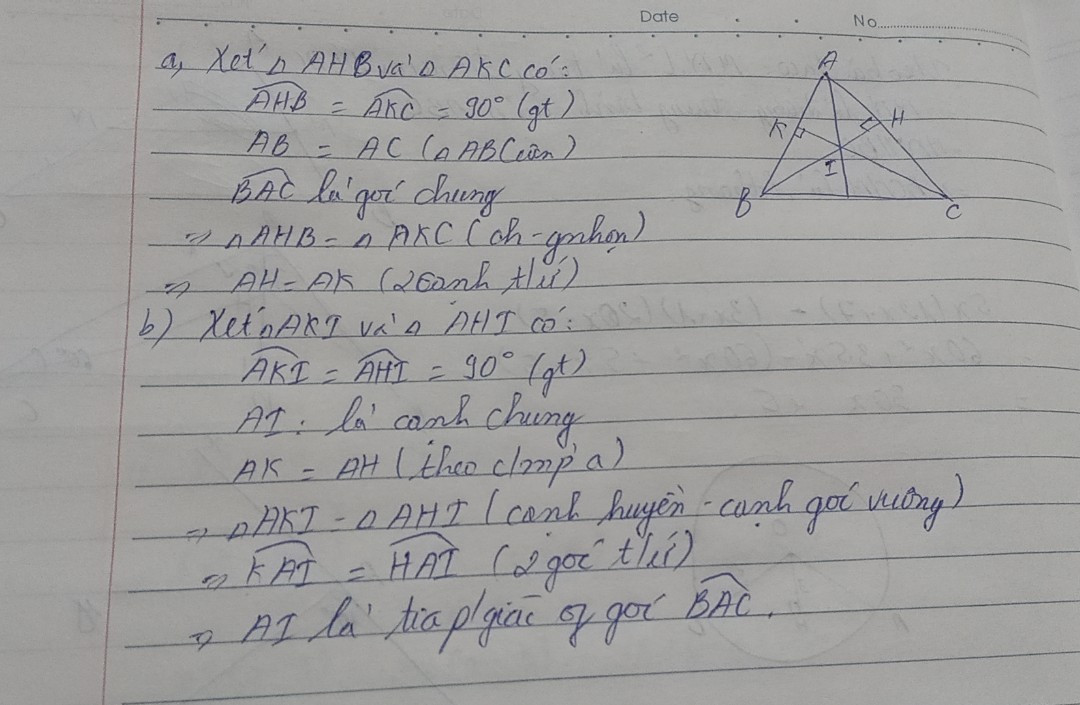 Date No
a, Xét △ AHB và △ AKC có:
AHB = AKC = 90° (gt)
AB = AC (△ ABC cân)
BAC là góc chung
=> △ AHB = △ AKC (ch - gnhọn)
=> AH = AK (2 cạnh t/ứ)
b) Xét △ AKI và △ AHI có:
AKI = AHI = 90° (gt)
AI : là cạnh chung
AK = AH (theo c/m p a)
=> △ AKI = △ AHI (cạnh huyền - cạnh góc vuông)
=> KAI = HAI (2 góc t/ứ)
=> AI là tia p/giác góc BAC.
A
K H
I
B C